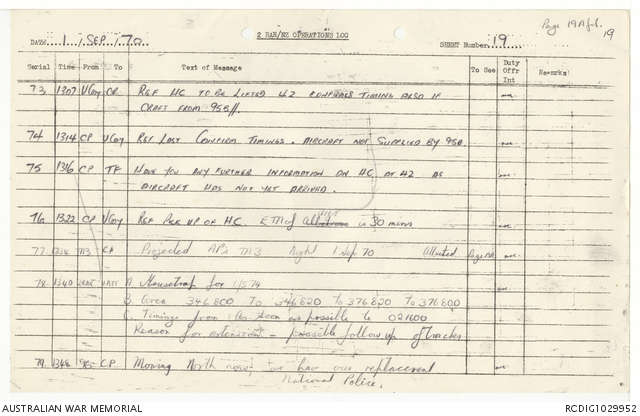 Page 19 A/ch. 19
2 RAR/NZ OPERATIONS LOG
DATE 1 / SEP / 70 SHEET Number: 19
Serial Time From To Text of Message To See Duty Offr Int Remarks
73 1307 V Coy CP REF HC TO BE LIFTED 42 CONFIRM TIMING ALSO IF
CRAFT FROM 9SB
74 1314 CP V Coy REF LAST CONFIRM TIMINGS. AIRCRAFT NOT SUPPLIED BY 9SB.
75 1316 CP TF HAVE YOU ANY FURTHER INFORMATION ON HC AT 42 AS
AIRCRAFT HAS NOT YET ARRIVED.
76 1322 CP V Coy REF PICK UP OF HC. ETA of is 30 mins
77 M3 CP Projected APs M3 Night 1 Sep 70 Attached Page 19A
78 1340 A. Mousetrap for
B. Area 346800 TO 346820 TO 376820 TO 376800
C. Timings from as soon as possible to 021800
Reason for extension - possible follow up of tracks
79 CP Moving North now, we have our replacement
National Police.
AUSTRALIAN WAR MEMORIAL RCDIG1029952